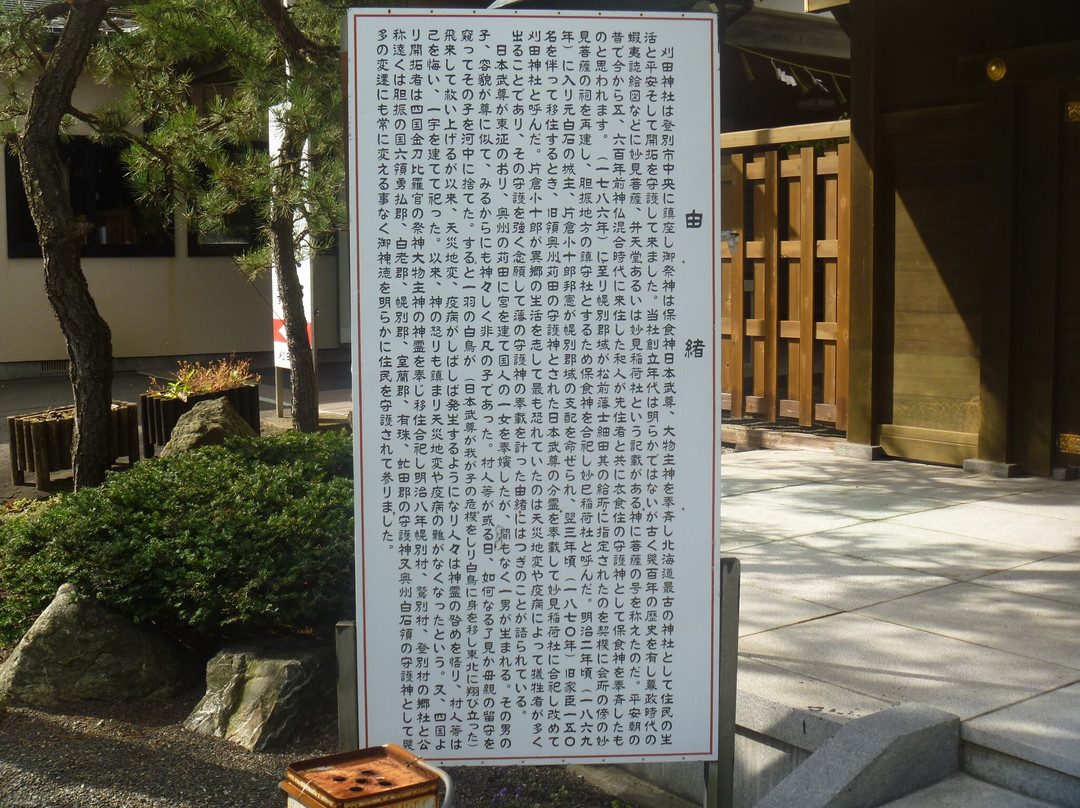 由緒
刈田神社は登別市中央に鎮座し御祭神は保食神日本武尊、大物主神を奉斉し北海道最古の神社として住民の生
活と平安そして開拓を守護して来ました。当社創立年代は明らかではないが古く幾百年の歴史を有し幕政時代の
蝦夷誌絵図などに妙見菩薩、弁天堂あるいは妙見稲荷社という記載がある神に菩薩の号を称えたのだ。平安朝の
昔で今から五、六百年前神仏混合時代に来住した和人が先住者と共に衣食住の守護神として保食神を奉斉したも
のと思われます。(一七八六年)に至り幌別郡域が松前藩士細田某の給所に指定されたのを契機に会所の傍の妙
見菩薩の祠を再建し、胆振地方の鎮守社とするため保食神を合祀し妙巳稲荷社と呼んだ。明治二年頃(一八六九
年)に入り元白石の城主、片倉小十郎邦憲が幌別郡域の支配を命ぜられ、翌三年頃(一八七〇年)旧家臣一五〇
名を伴って移住するとき、旧領奥州苅田の守護神とされた日本武尊の分霊を奉載して妙見稲荷社に合祀し改めて
刈田神社と呼んだ。片倉小十郎が異郷の生活を志して最も恐れていたのは天災地変や疫病によって犠牲者が多く
出ることであり、その守護を強く念願して藩の守護神の奉載を計った由緒にはつぎのことが語られている。
日本武尊が東征のおり、奥州の苅田に宮を建て国人の一女を奉嬪したが、間もなく一男が生まれる。その男の
子、容貌が尊に似て、みるからにも神々しく非凡の子であった。村人等が或る日、如何なる了見か母親の留守を
窺ってその子を河中に捨てた。すると一羽の白鳥が、(日本武尊が我が子の危機をしり白鳥に身を移し東北に翔び立った)
飛来して救い上げるが以来、天災地変、疫病がしばしば発生するようになり人々は神霊の咎めを悟り、村人等は
己を悔い、一宇を建てて祀った。以来、神の怒りも鎮まり天災地変や疫病の難がなくなったという。又、四国よ
り開拓者は四国金刀比羅宮の祭神大物主神の神霊を奉じ移住合祀し明治八年幌別村、鷲別村、登別村の郷社と公
称遠くは胆振の国六領勇払郡、白老郡、幌別郡、室蘭郡、有珠、虻田郡の守護神又奥州白石領の守護神として幾
多の変遷にも常に変える事なく御神徳を明らかに住民を守護されて参りました。